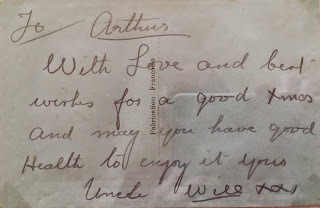 To Arthur
With Love and best
wishes for a good Xmas
and may you have good
Health to enjoy it yours
Uncle Will xxx
Fabrication Française